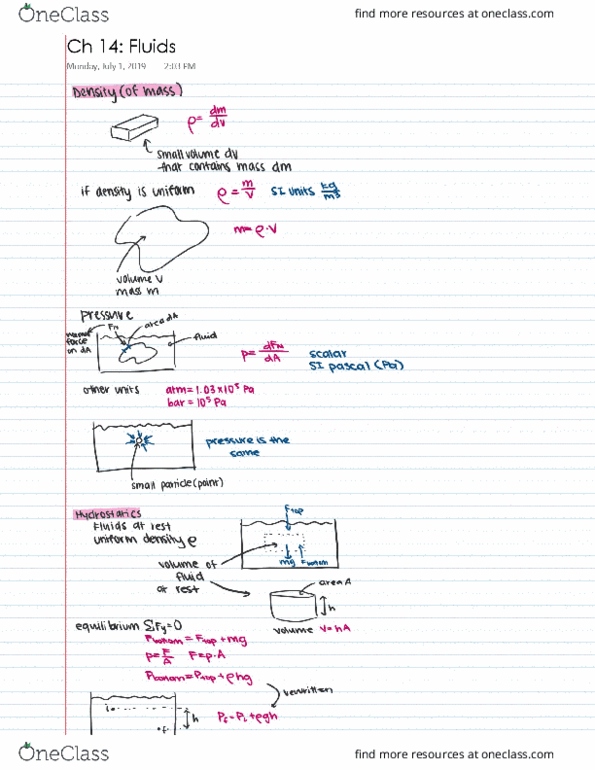 OneClass
find more resources at oneclass.com
Ch 14: Fluids
Monday, July 1, 2019 2:03 PM
Density (of mass)
ρ = dm/dv
small volume dv
that contains mass dm
if density is uniform ρ = m/V SI units kg/m³
m = ρ·V
volume V
mass m
pressure
FN area dA
normal force on dA
fluid
p = dFN/dA scalar
SI pascal (Pa)
other units atm = 1.03 x 10⁵ Pa
bar = 10⁵ Pa
pressure is the
same
small particle (point)
Hydrostatics
Fluids at rest
uniform density ρ
Ftop
mg Fbottom
volume of
fluid
at rest
area A
h
equilibrium ΣFy = 0
volume V = hA
Fbottom = Ftop + mg
p = F/A F = p·A
Pbottom = Ptop + ρhg
rewritten
i
h
Pf = Pi + ρgh
f
OneClass
find more resources at oneclass.com